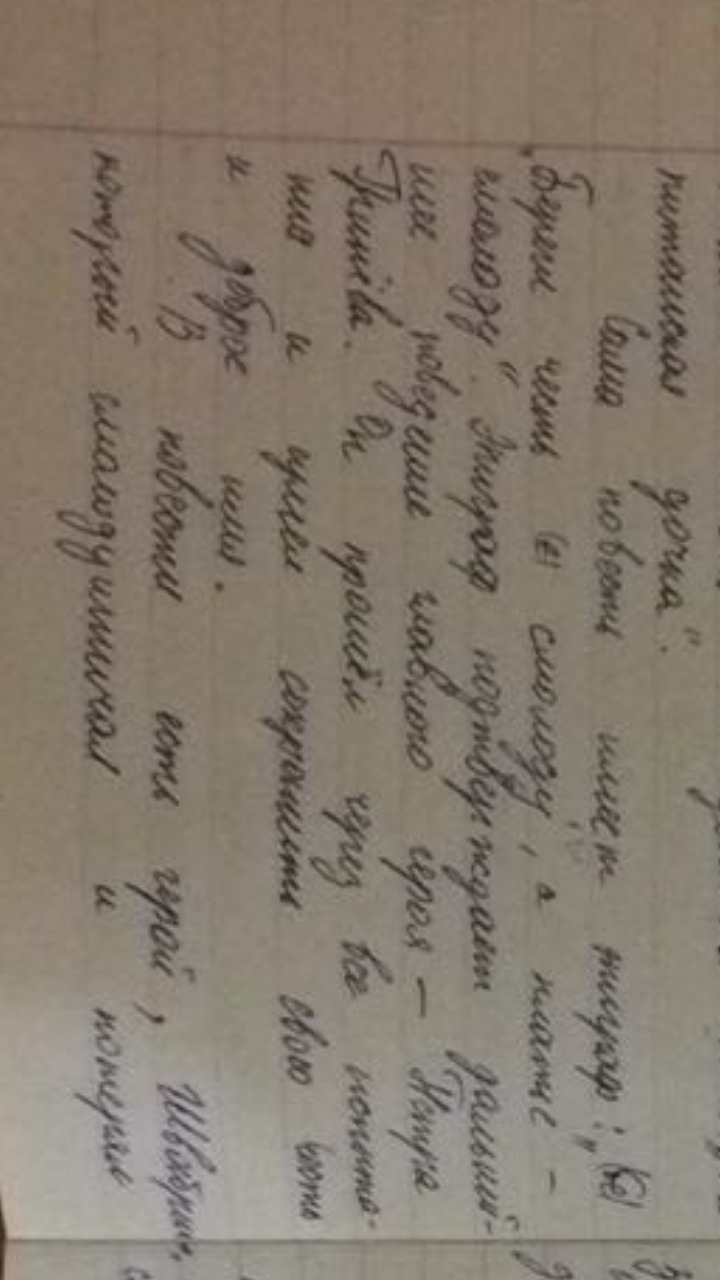 питанская дочка".
Сама повесть имеет эпиграф: „
Береги честь смолоду, а платье -
смолоду". Эпиграф подтверждает дальней-
шее поведение главного героя – Петра
Гринёва. Он прошёл через все испыта-
ния и сумел сохранить свою честь
и доброе имя.
В повести есть герой, Швабрин,
который смалодушничал и потерял